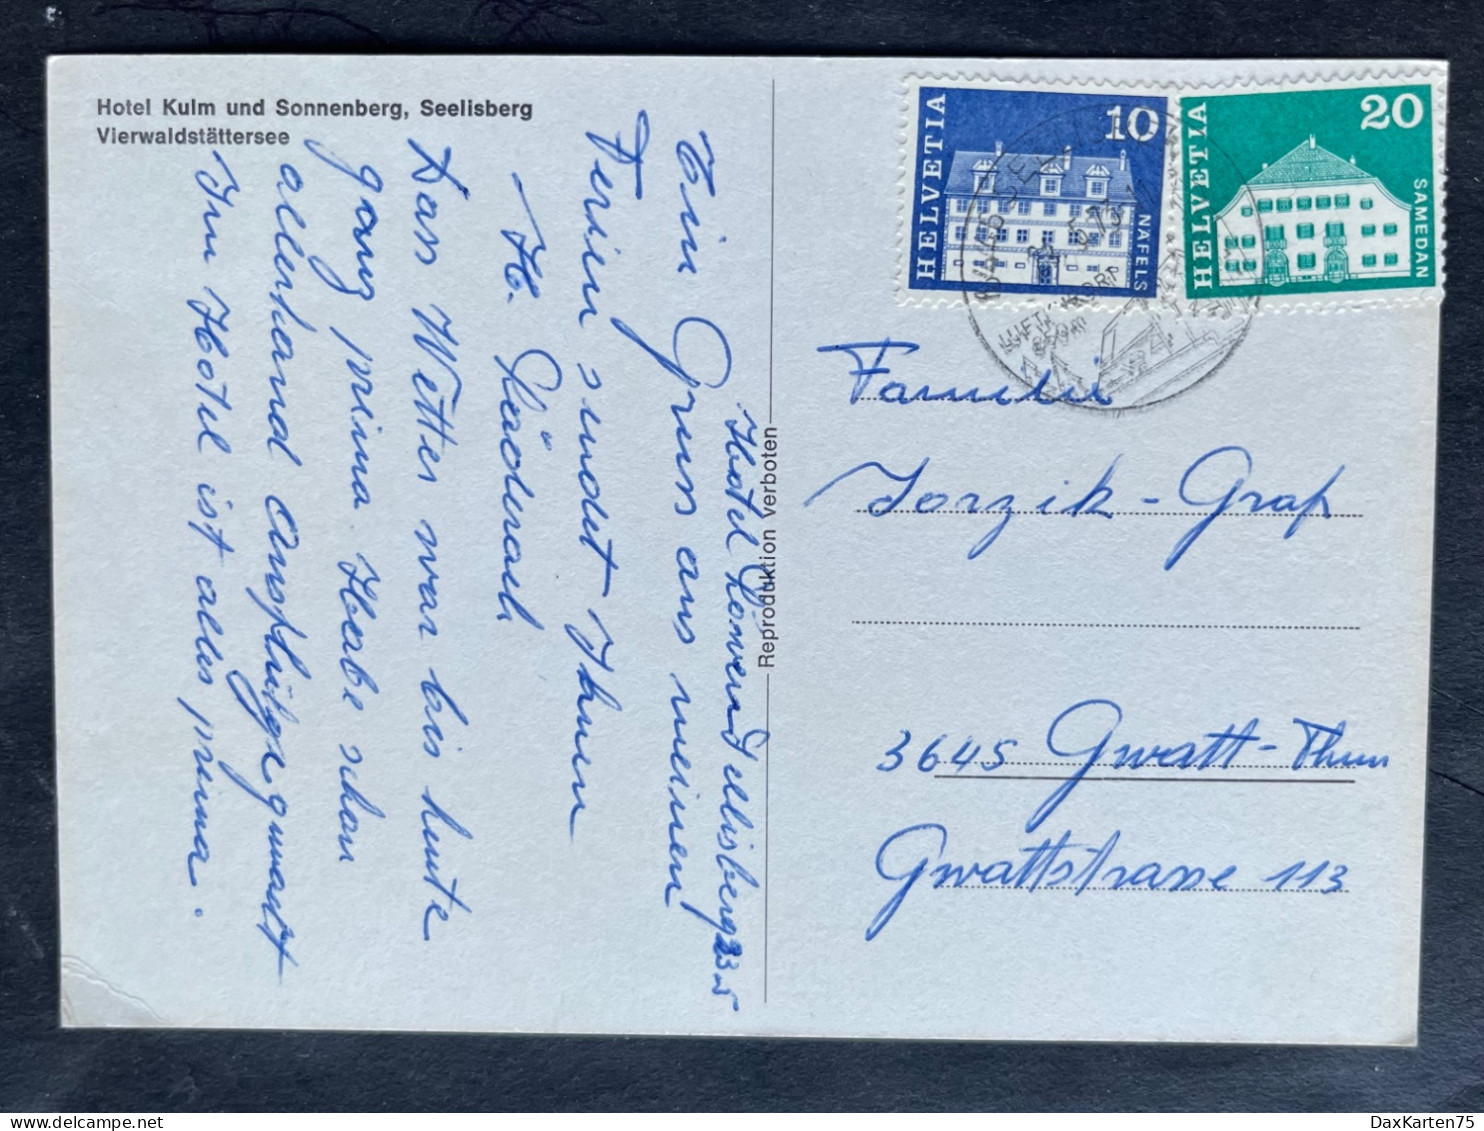 Hotel Kulm und Sonnenberg, Seelisberg
Vierwaldstättersee
Hotel Löwen Sellisberg 23.5
Ein Gruss aus meinen
Ferien sendet Ihnen
H. Läderach
Dass Wetter war bis heute
ganz prima Habe schon
allerhand Ausflüge gmacht
Im Hotel ist alles prima.
Reproduktion verboten
HELVETIA 10 NÄFELS
HELVETIA 20 SAMEDAN
6446 SEELISBERG
5.73-11
LUFTKURORT
Familie
Jorzik-Graf
3645 Gwatt-Thun
Gwattstrasse 113
DaxKarten75